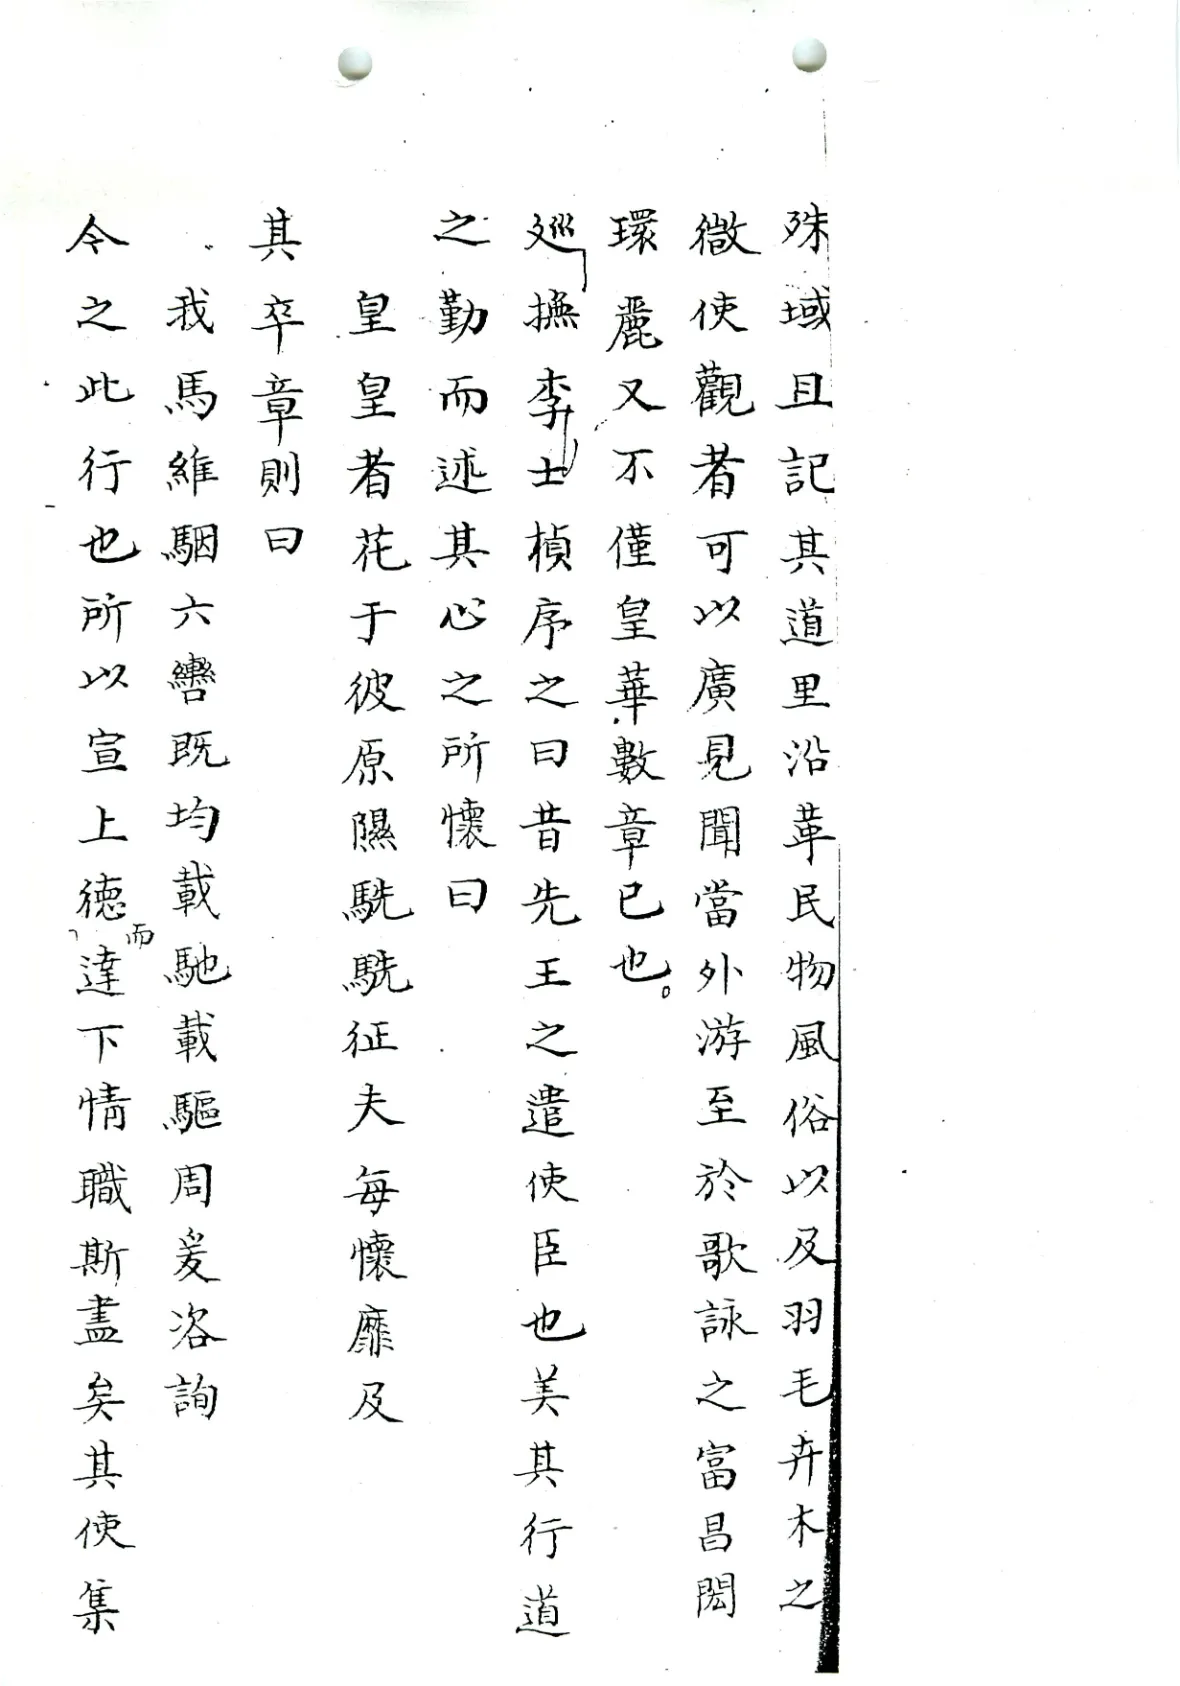 殊域且記其道里沿革民物風俗以及羽毛卉木之
微使觀者可以廣見聞當外游至於歌詠之富昌閎
環麗又不僅皇華數章已也。
巡撫李士楨序之曰昔先王之遣使臣也美其行道
之勤而述其心之所懷曰
皇皇者花于彼原隰駪駪征夫每懷靡及
其卒章則曰
我馬維駰六轡既均載馳載驅周爰咨詢
令之此行也所以宣上德而達下情職斯盡矣其使集